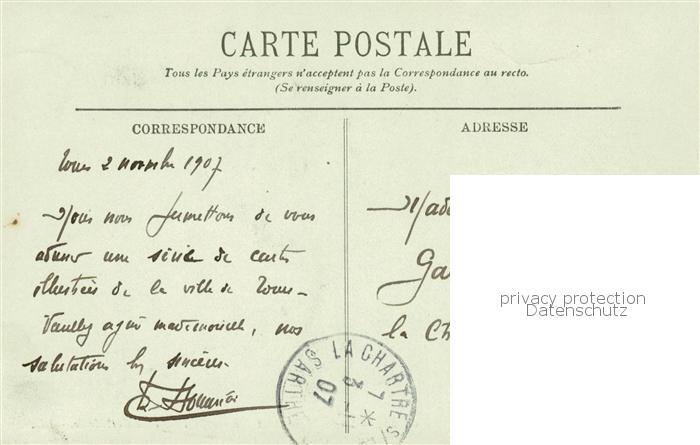 CARTE POSTALE
Tous les Pays étrangers n'acceptent pas la Correspondance au recto.
(Se renseigner à la Poste).
CORRESPONDANCE
ADRESSE
Tours 2 novembre 1907
Nous nous permettons de vous
adresser une série de cartes
illustrées de la ville de Tours -
Veuillez agréer mademoiselle, nos
salutations bien sincères.
Mad
Ga
la Ch
LA CHARTRE S
SARTHE
7
07
privacy protection
Datenschutz